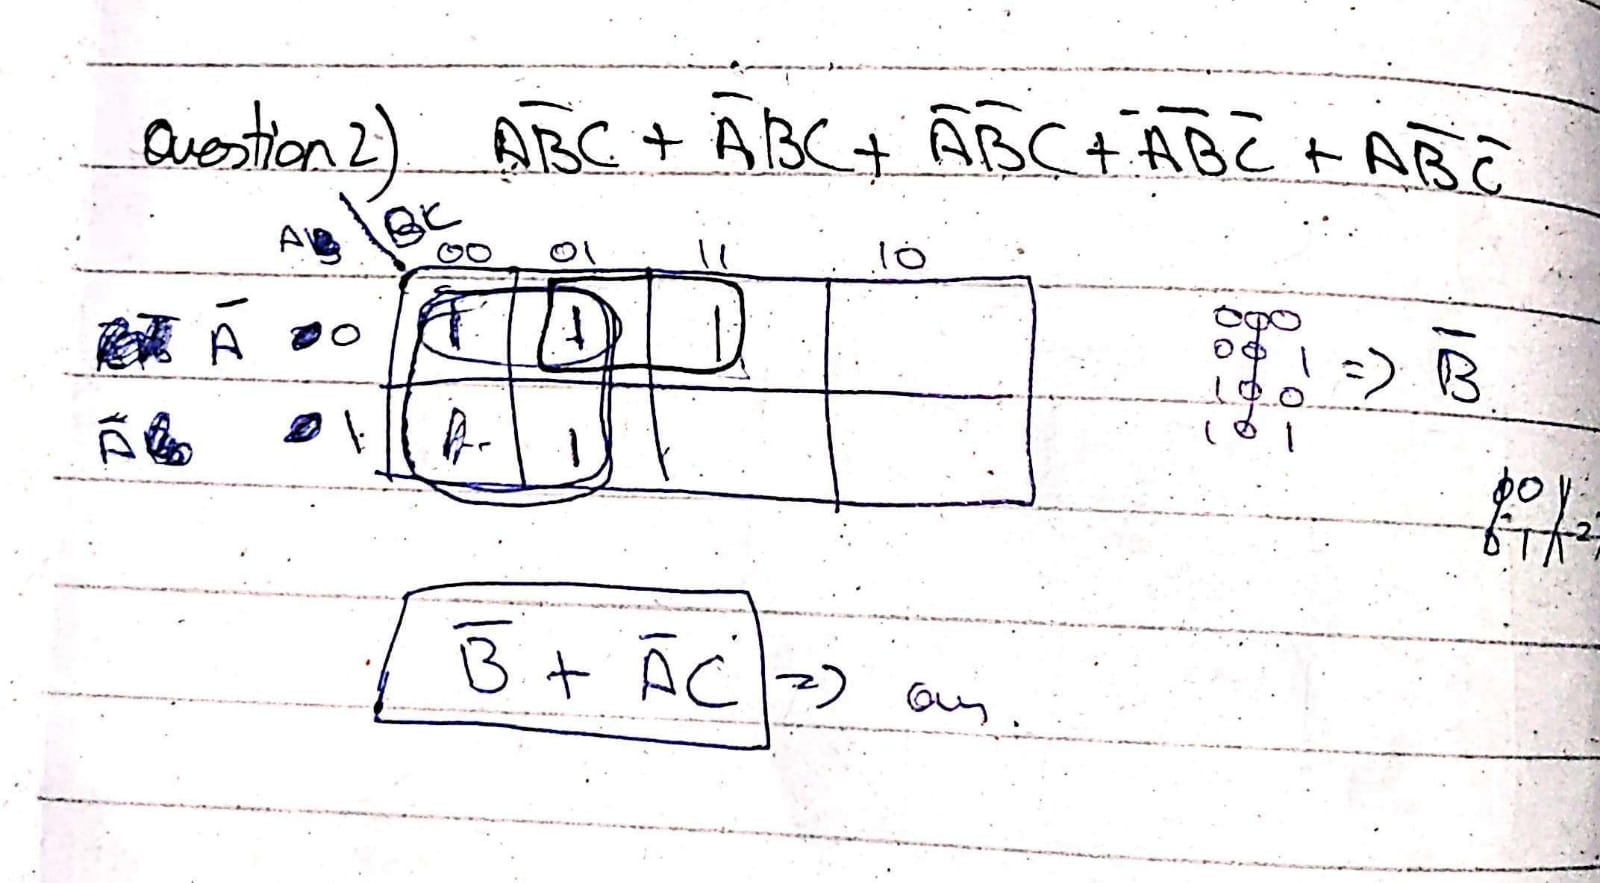 Question 2) AB̅C + A̅BC + A̅B̅C + A̅B̅C̅ + AB̅C̅
A \ BC
00 01 11 10
A̅ 0 1 1 1
A̅ 1 1 1
000
001
100
101
=> B̅
B̅ + A̅C => ans.